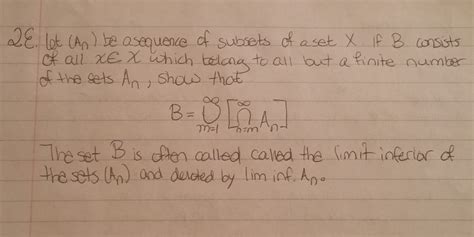 2E. Let (An) be a sequence of subsets of a set X. If B consists
of all x∈X which belong to all but a finite number
of the sets An, show that
B = ∞⋃m=1 [∞⋂n=m An]
The set B is often called called the limit inferior of
the sets (An) and denoted by lim inf. An.